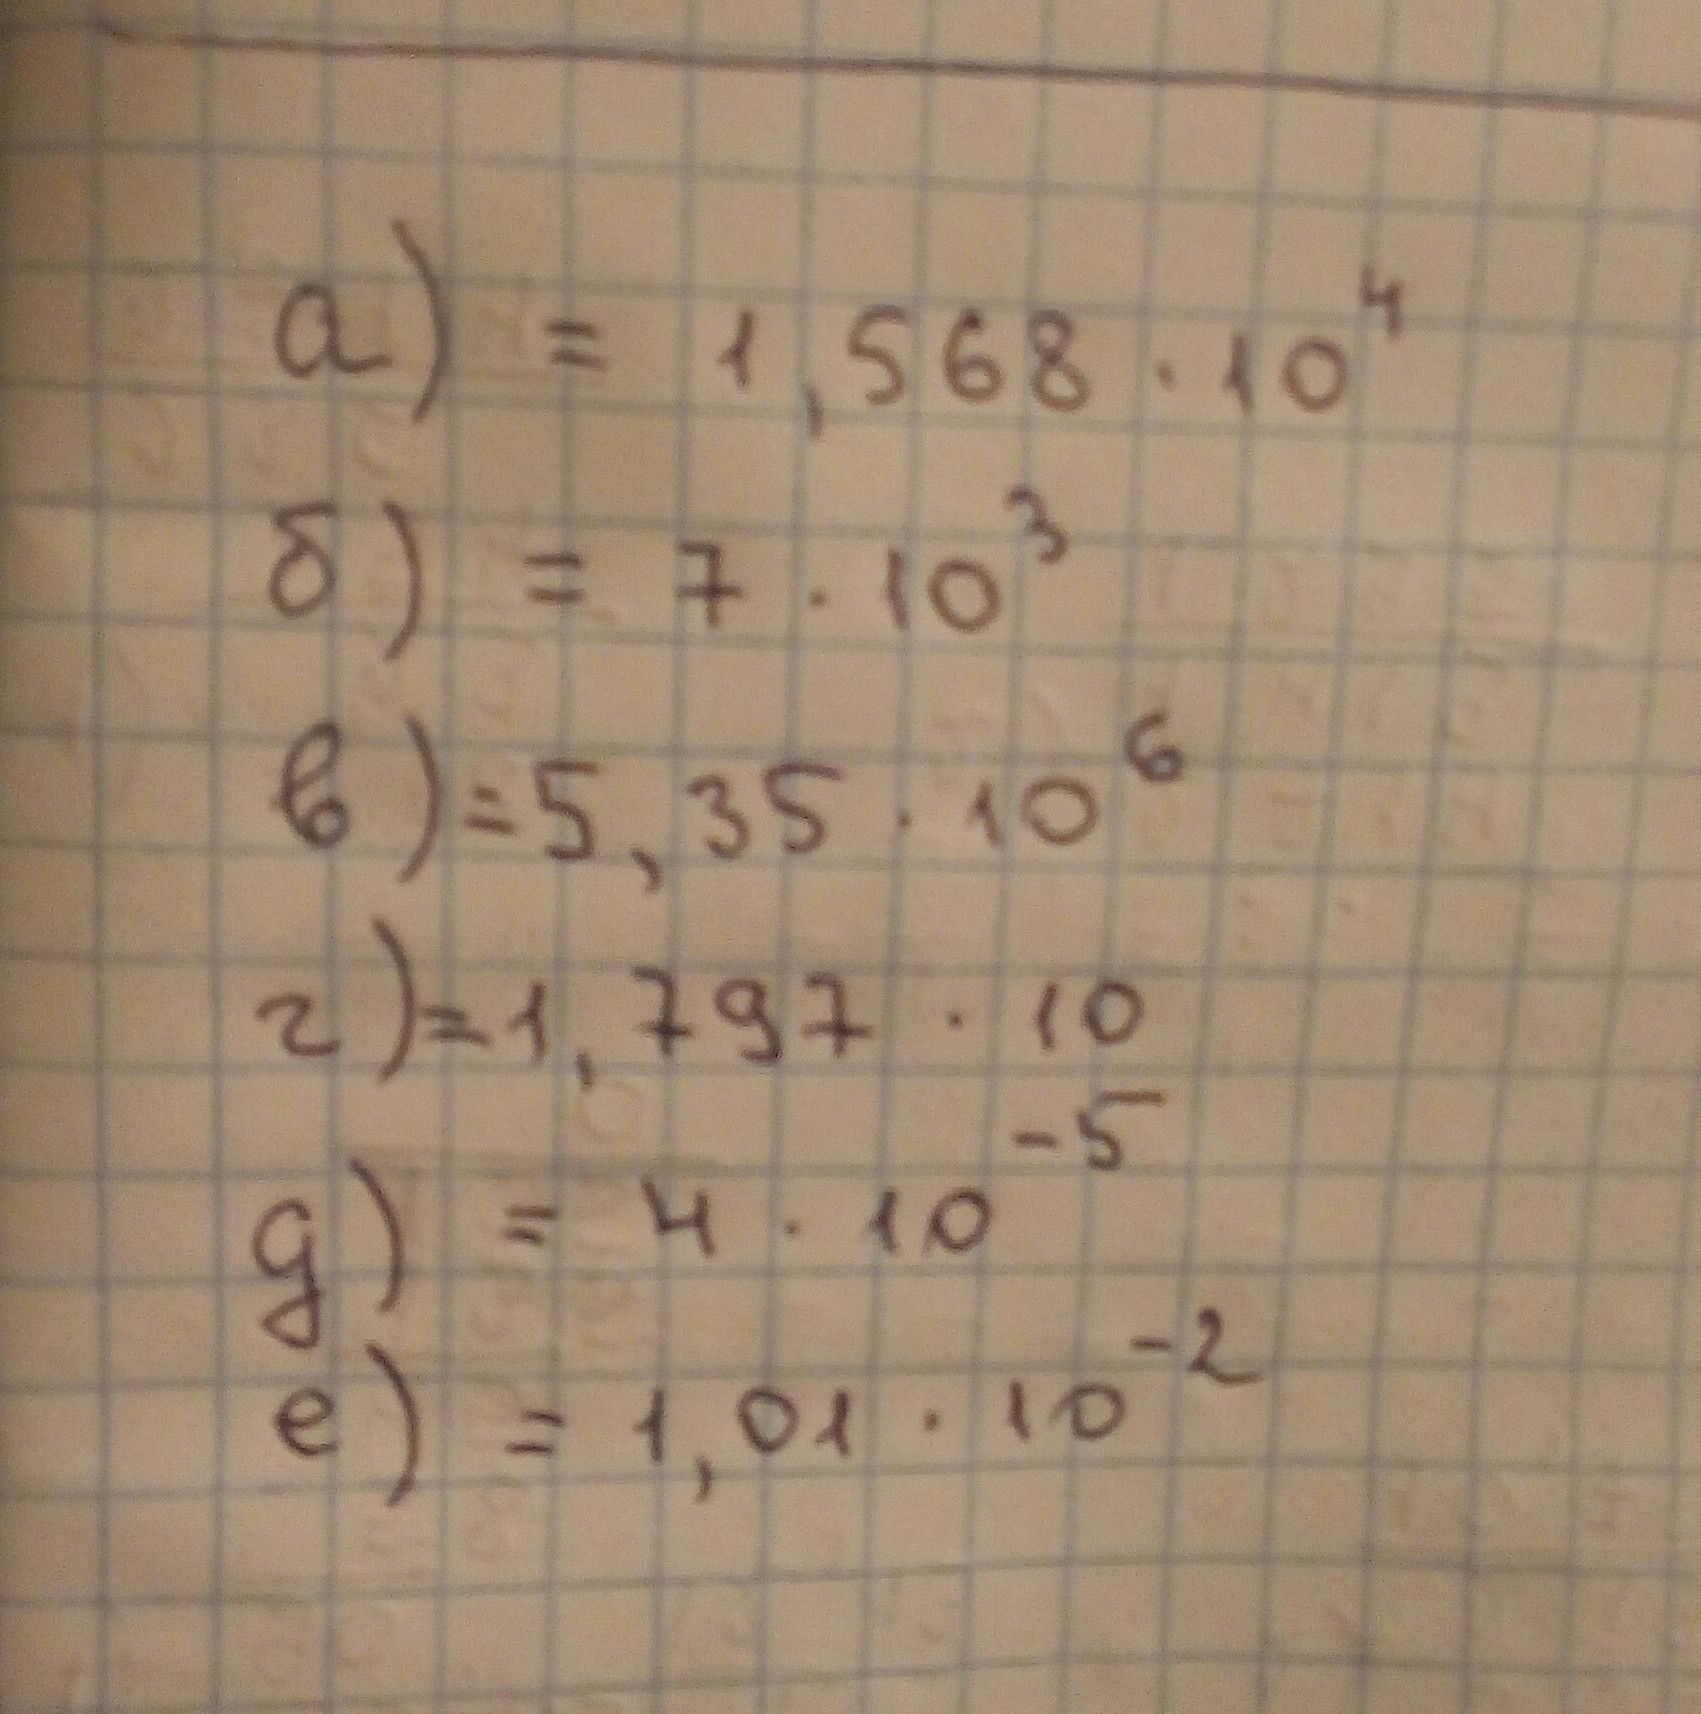 а) = 1,568 · 10⁴
б) = 7 · 10³
в) = 5,35 · 10⁶
г) = 1,797 · 10
д) = 4 · 10⁻⁵
е) = 1,01 · 10⁻²